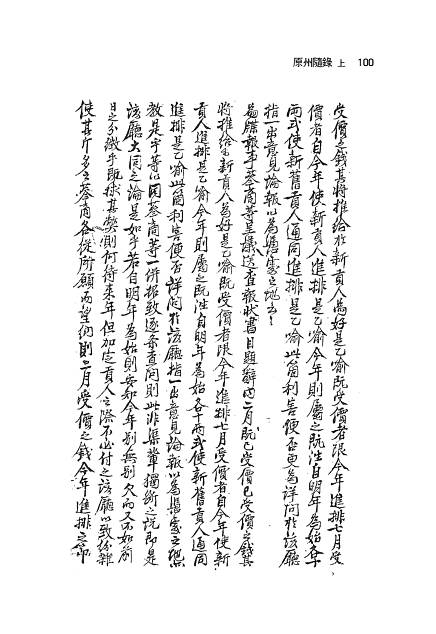 原州隨錄 上 100
受價之錢其將推給於新貢人爲好是乙喩旣受價者限今年進排七月受
價者自今年使新貢人進排是乙喩今年則屬之旣往自明年爲始各十
兩式使新舊貢人通同進排是乙喩此箇利害便否更爲詳問於該廳
指一出意見論報以爲憑處之地云云
爲牒報事蔘商等呈議送査報狀書目題辭內二月旣已受價已受價之錢其
將推給於新貢人爲好是乙喩旣受價者限今年進排七月受價者自今年使新
貢人進排是乙喩今年則屬之旣往自明年爲始各十兩式使新舊貢人通同
進排是乙喩此箇利害便否詳問於該廳指一出意見論報以爲憑處之地
敎是乎等以同蔘商等一倂招致逐条査問則此非渠輩獨斷之說卽是
該廳大同之論是如乎若自明年爲始則安知今年別無別欠而又不如前
日之分徵乎旣捄其弊則何待來年但加定貢人之際不必付之該廳以致紛雜
使其斤多少蔘商各從所願而望納則二月受價之錢今年進排之節